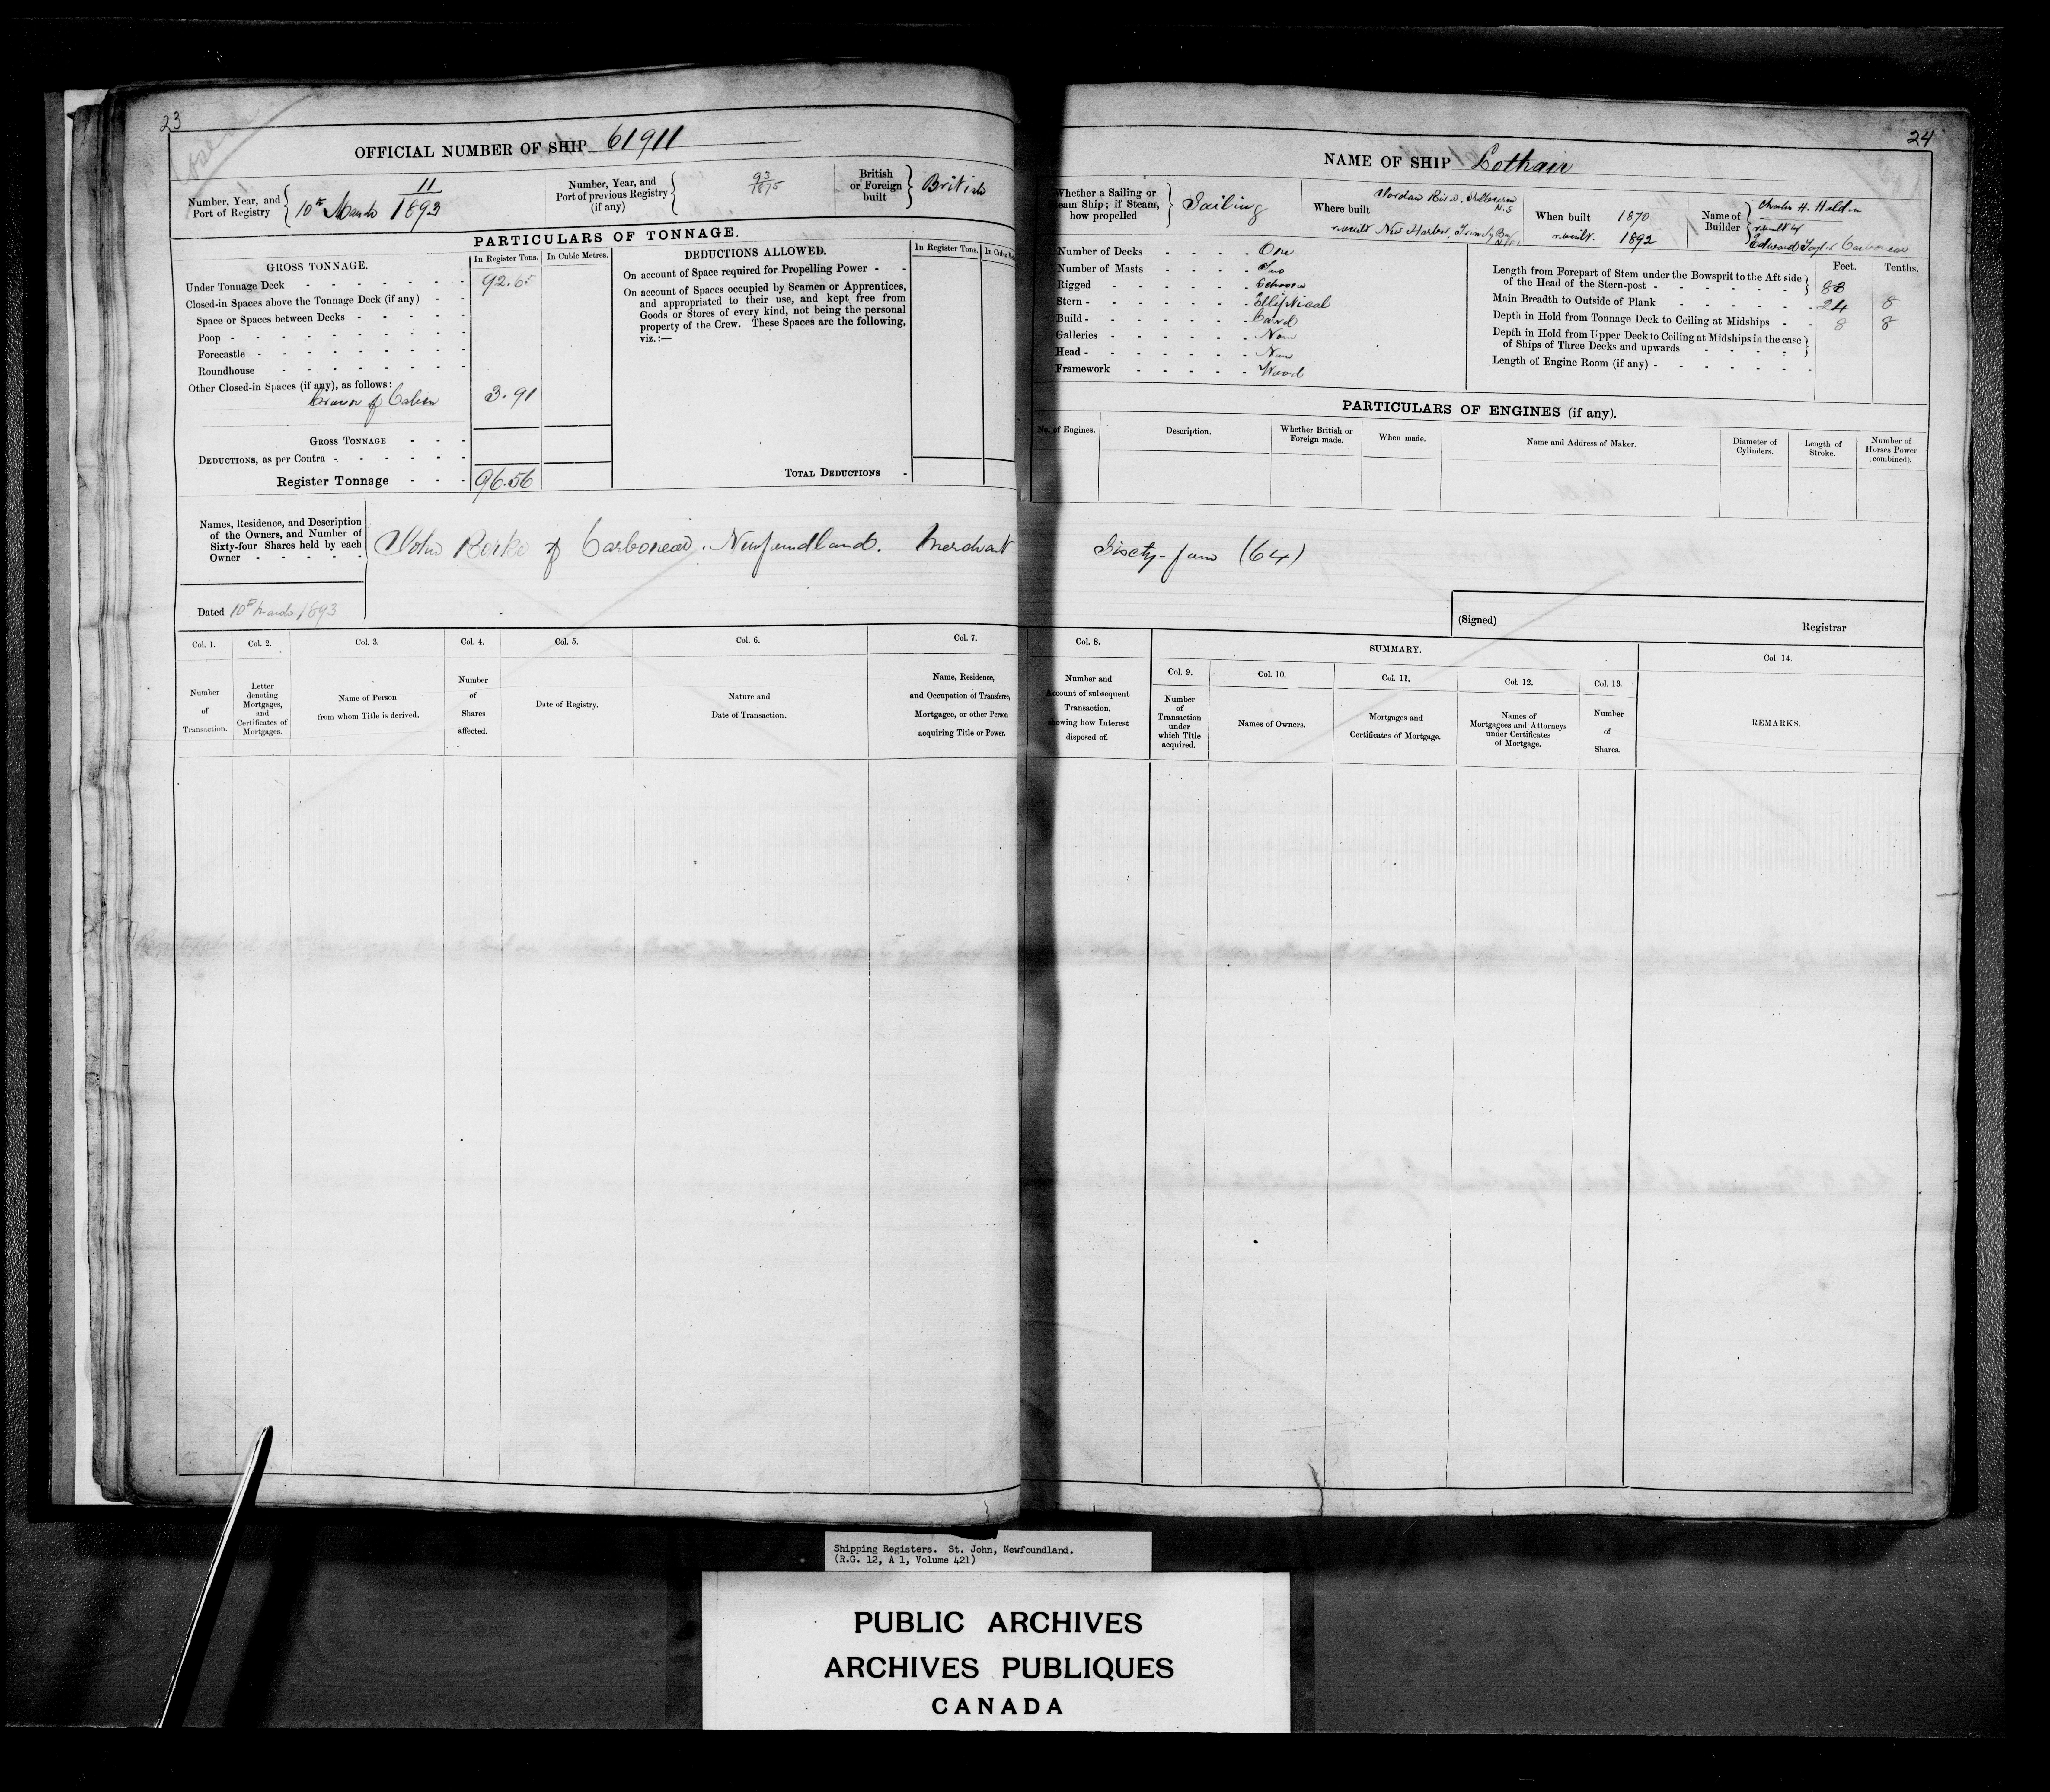 23
OFFICIAL NUMBER OF SHIP 61911
Number, Year, and Port of Registry
11
10th March 1893
Number, Year, and Port of previous Registry (if any)
93
1875
British or Foreign built
British
PARTICULARS OF TONNAGE.
GROSS TONNAGE.
In Register Tons.
In Cubic Metres.
Under Tonnage Deck 92.65
Closed-in Spaces above the Tonnage Deck (if any)
Space or Spaces between Decks
Poop
Forecastle
Roundhouse
Other Closed-in Spaces (if any), as follows:
Crown of Cabin 3.91
GROSS TONNAGE
DEDUCTIONS, as per Contra
Register Tonnage 96.56
DEDUCTIONS ALLOWED.
In Register Tons.
On account of Space required for Propelling Power
On account of Spaces occupied by Seamen or Apprentices,
and appropriated to their use, and kept free from
Goods or Stores of every kind, not being the personal
property of the Crew. These Spaces are the following,
viz.:—
TOTAL DEDUCTIONS
Names, Residence, and Description
of the Owners, and Number of
Sixty-four Shares held by each
Owner
John Rorke of Carbonear. Newfoundland. Merchant
Dated 10th March 1893
Col. 1.
Number
of
Transaction.
Col. 2.
Letter
denoting
Mortgages,
and
Certificates of
Mortgages.
Col. 3.
Name of Person
from whom Title is derived.
Col. 4.
Number
of
Shares
affected.
Col. 5.
Date of Registry.
Col. 6.
Nature and
Date of Transaction.
Col. 7.
Name, Residence,
and Occupation of Transferee,
Mortgagee, or other Person
acquiring Title or Power.
24
NAME OF SHIP Lothair
Whether a Sailing or
Steam Ship; if Steam,
how propelled
Sailing
Where built
Jordan River. Shelburne
N.S
rebuilt New Harbor, Trinity Bay
When built 1870
rebuilt. 1892
Name of Builder
Charles H. Holden
rebuilt by
Edward Taylor Carbonear
Number of Decks One
Number of Masts Two
Rigged Schooner
Stern Elliptical
Build Carvel
Galleries None
Head None
Framework Wood
Feet.
Tenths.
Length from Forepart of Stem under the Bowsprit to the Aft side
of the Head of the Stern-post 88
Main Breadth to Outside of Plank 24 8
Depth in Hold from Tonnage Deck to Ceiling at Midships 8 8
Depth in Hold from Upper Deck to Ceiling at Midships in the case
of Ships of Three Decks and upwards
Length of Engine Room (if any)
PARTICULARS OF ENGINES (if any).
No. of Engines.
Description.
Whether British or
Foreign made.
When made.
Name and Address of Maker.
Diameter of
Cylinders.
Length of
Stroke.
Number of
Horses Power
(combined).
Sixty-four (64)
(Signed)
Registrar
Col. 8.
Number and
Account of subsequent
Transaction,
showing how Interest
disposed of.
SUMMARY.
Col. 9.
Number
of
Transaction
under
which Title
acquired.
Col. 10.
Names of Owners.
Col. 11.
Mortgages and
Certificates of Mortgage.
Col. 12.
Names of
Mortgagees and Attorneys
under Certificates
of Mortgage.
Col. 13.
Number
of
Shares.
Col 14.
REMARKS.
Shipping Registers. St. John, Newfoundland.
(R.G. 12, A 1, Volume 421)
PUBLIC ARCHIVES
ARCHIVES PUBLIQUES
CANADA